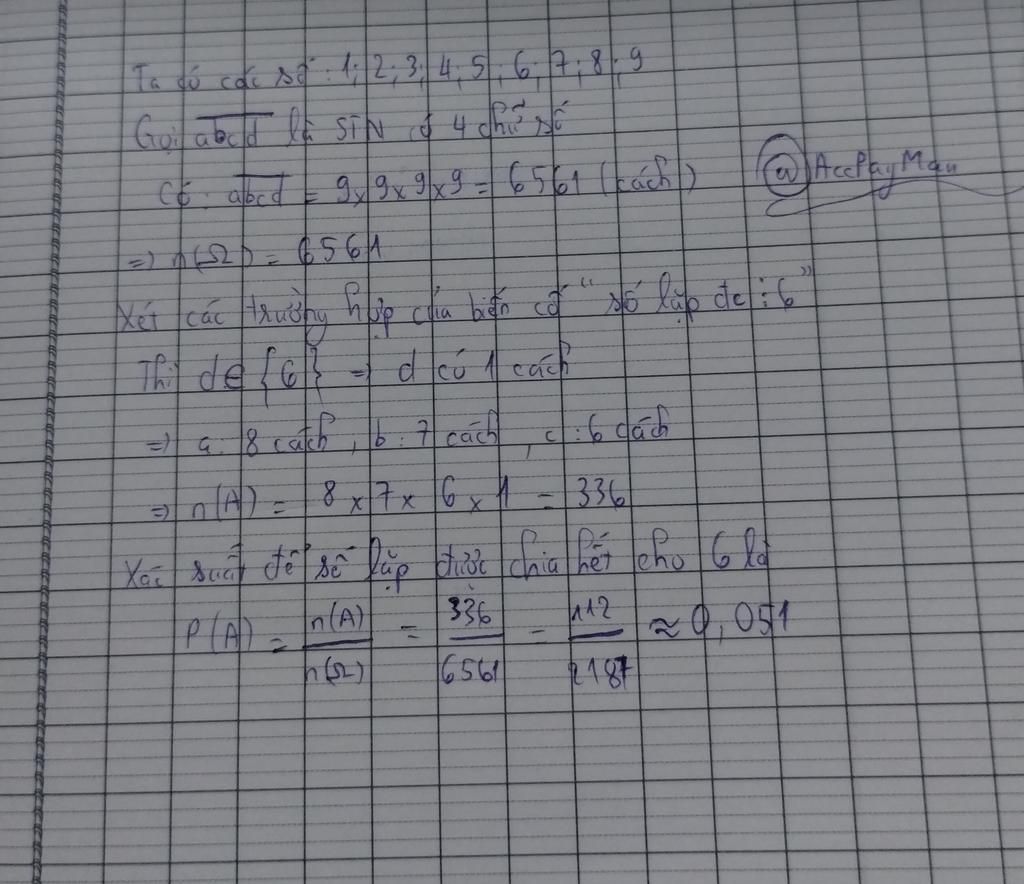 Ta có các số : 1; 2; 3; 4; 5; 6; 7; 8; 9
Gọi abcd là STN có 4 chữ số
Có : abcd = 9 x 9 x 9 x 9 = 6561 (cách)
@AccPayMau
=> n(Ω) = 6561
Xét các trường hợp của biến cố “số lập đc ⋮ 6”
Thì d∈ {6} => d có 1 cách
=> a : 8 cách, b : 7 cách, c : 6 cách
=> n(A) = 8 x 7 x 6 x 1 = 336
Xác suất để số lập được chia hết cho 6 là
P(A) = n(A)/n(Ω) = 336/6561 = 112/2187 ≈ 0,051